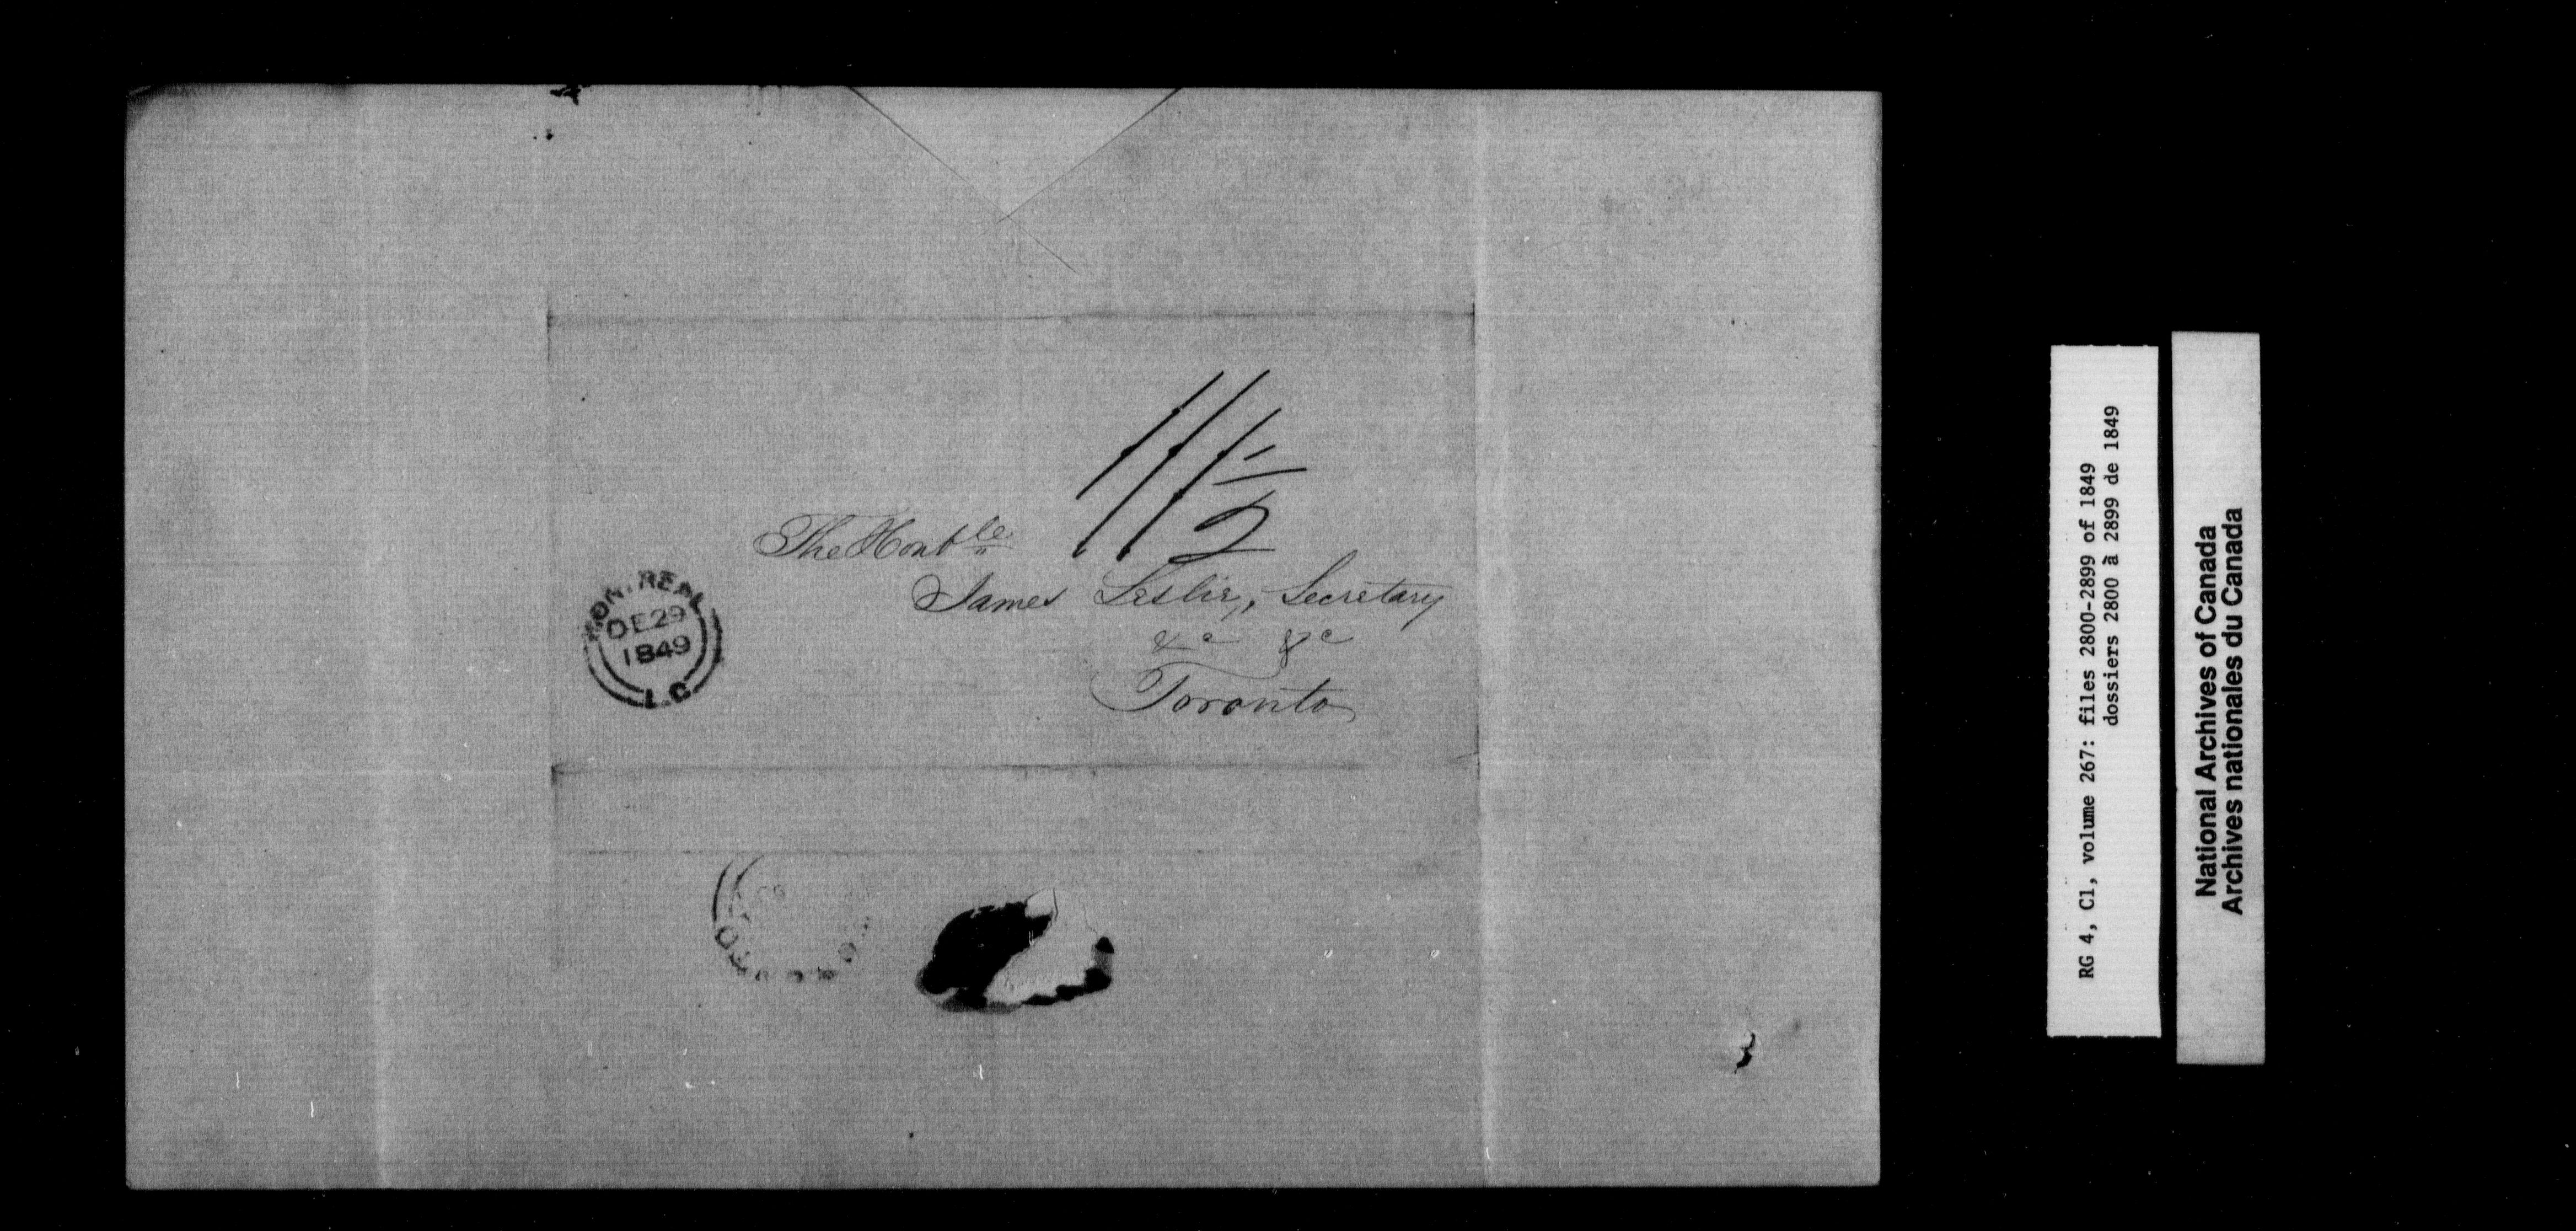 11 1/2
The Honble
James Leslie, Secretary
&c &c
Toronto
MONTREAL
DE 29
1849
L.C
RG 4, C1, volume 267: files 2800-2899 of 1849
dossiers 2800 à 2899 de 1849
National Archives of Canada
Archives nationales du Canada